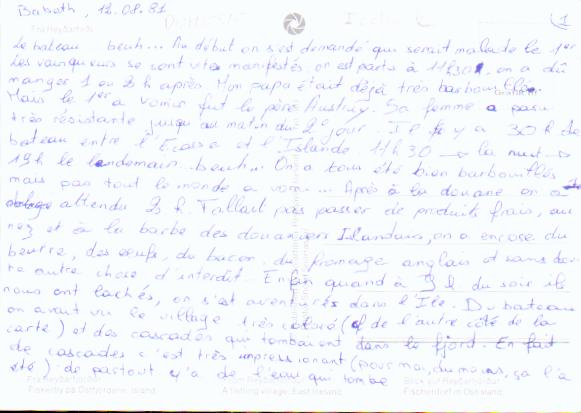 Babeth, 12.08.81
1
Fra Reyðarfirði
Le bateau beuh... Au début on s'est demandé qui serait malade le 1er
Les vainqueurs se sont vites manifestés, on est partis à 11h30, on a dû
manger 1 ou 2 h après. Mon papa était déjà très barbouillé.
Mais le 1er a vomir fut le père Austruy. Sa femme a paru
très résistante jusqu'au matin du 2e jour. Il y a 30 h de
bateau entre l'Ecosse et l'Islande 11h30 → la nuit →
19h le lendemain. beuh... On a tous été bien barbouillés
mais pas tout le monde a vomi... Après à la douane on a
attendu 2 h. Fallait pas passer de produits frais, au
nez et à la barbe des douaniers Islandais, on a encore du
beurre, des oeufs, du bacon, du fromage anglais et sans dou-
te autre chose d'interdit. Enfin quand à 9 h du soir ils
nous ont lachés, on s'est aventurés dans l'Ile. Du bateau
on avait vu le village très coloré (cf de l'autre côté de la
carte) et des cascades qui tombaient dans le fjord. En fait
de cascades c'est très impressionant (pour moi, du moins, ça l'a
été) : de partout y'a de l'eau qui tombe
Fra Reyðarfirði
Fiskerby på Østfjordene, Island.
A fishing village, East Iceland.
Blick auf Reyðarfjörður
Fischerdorf in Ostisland.